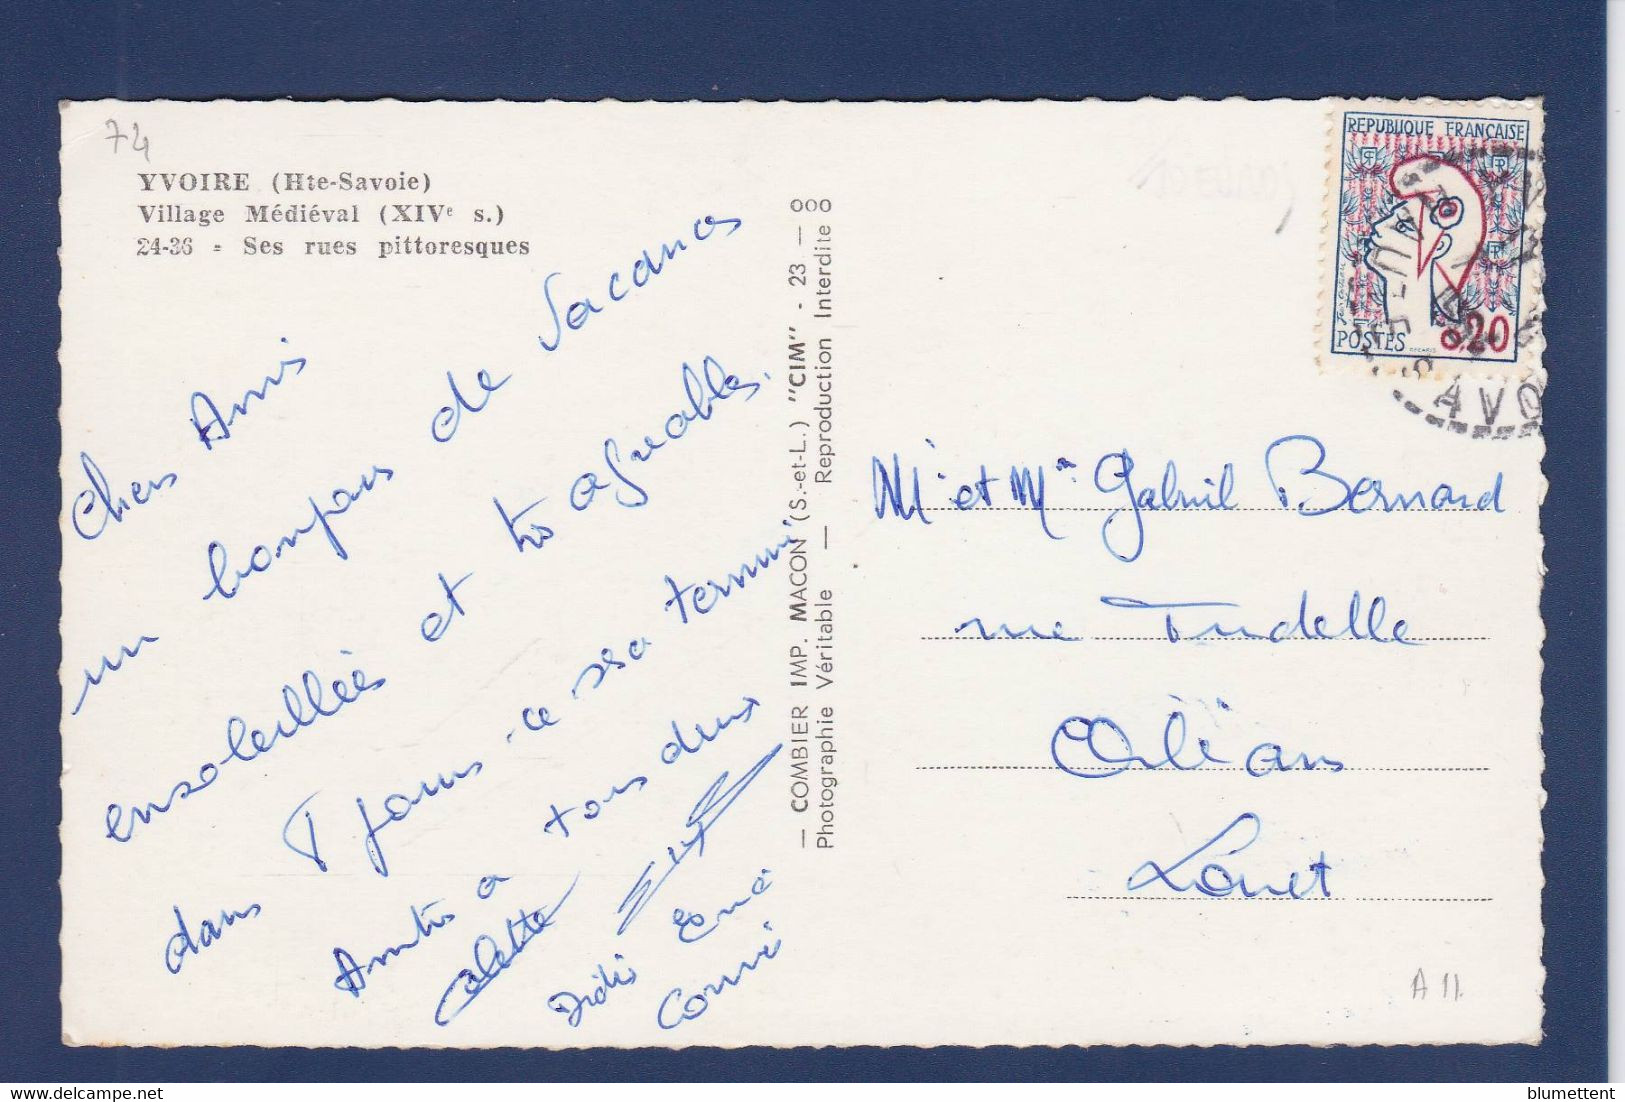 74
YVOIRE (Hte-Savoie)
Village Médiéval (XIVe s.)
24-36 - Ses rues pittoresques
Chers Amis
un bonjour de Vacances
ensoleillées et très agréables.
dans 7 jours ce sera terminé
Amitiés à tous deux
Colette
Didier
— COMBIER IMP. MACON (S.-et-L.) "CIM" - 23 — ooo
Photographie Véritable — Reproduction Interdite
REPUBLIQUE FRANÇAISE
POSTES 0,20
AVO
Mr et Mme Gabriel Bernard
rue Tudelle
Orléans
Loiret
A 11
blumettent